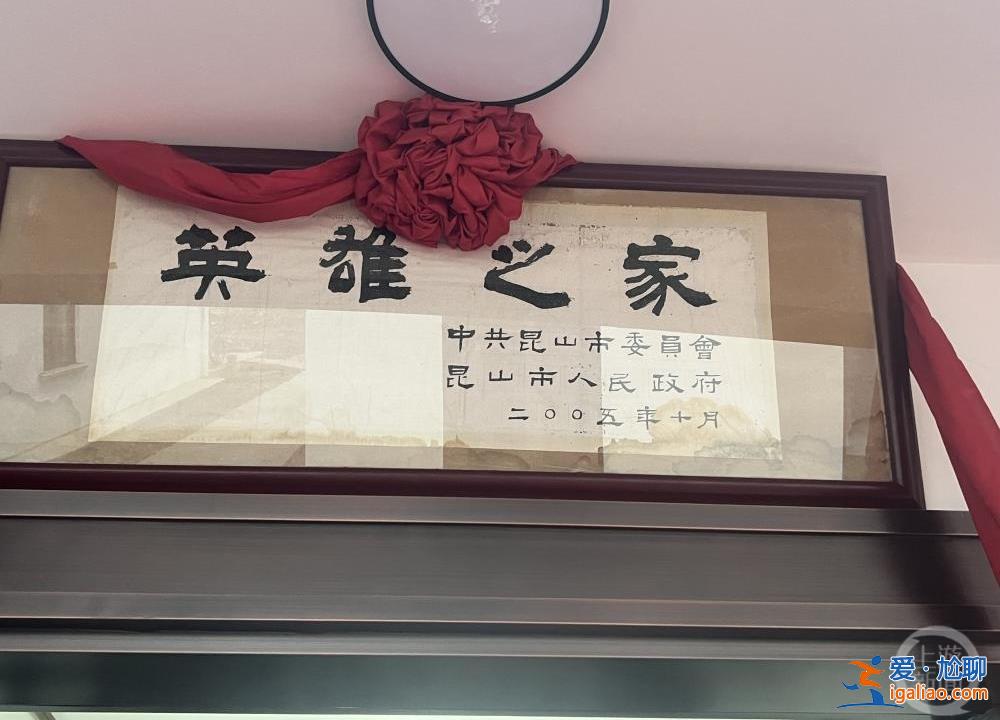 英雄之家
中共昆山市委員會
昆山市人民政府
二〇〇五年十月
上游新闻
爱·尬聊
igaliao.com